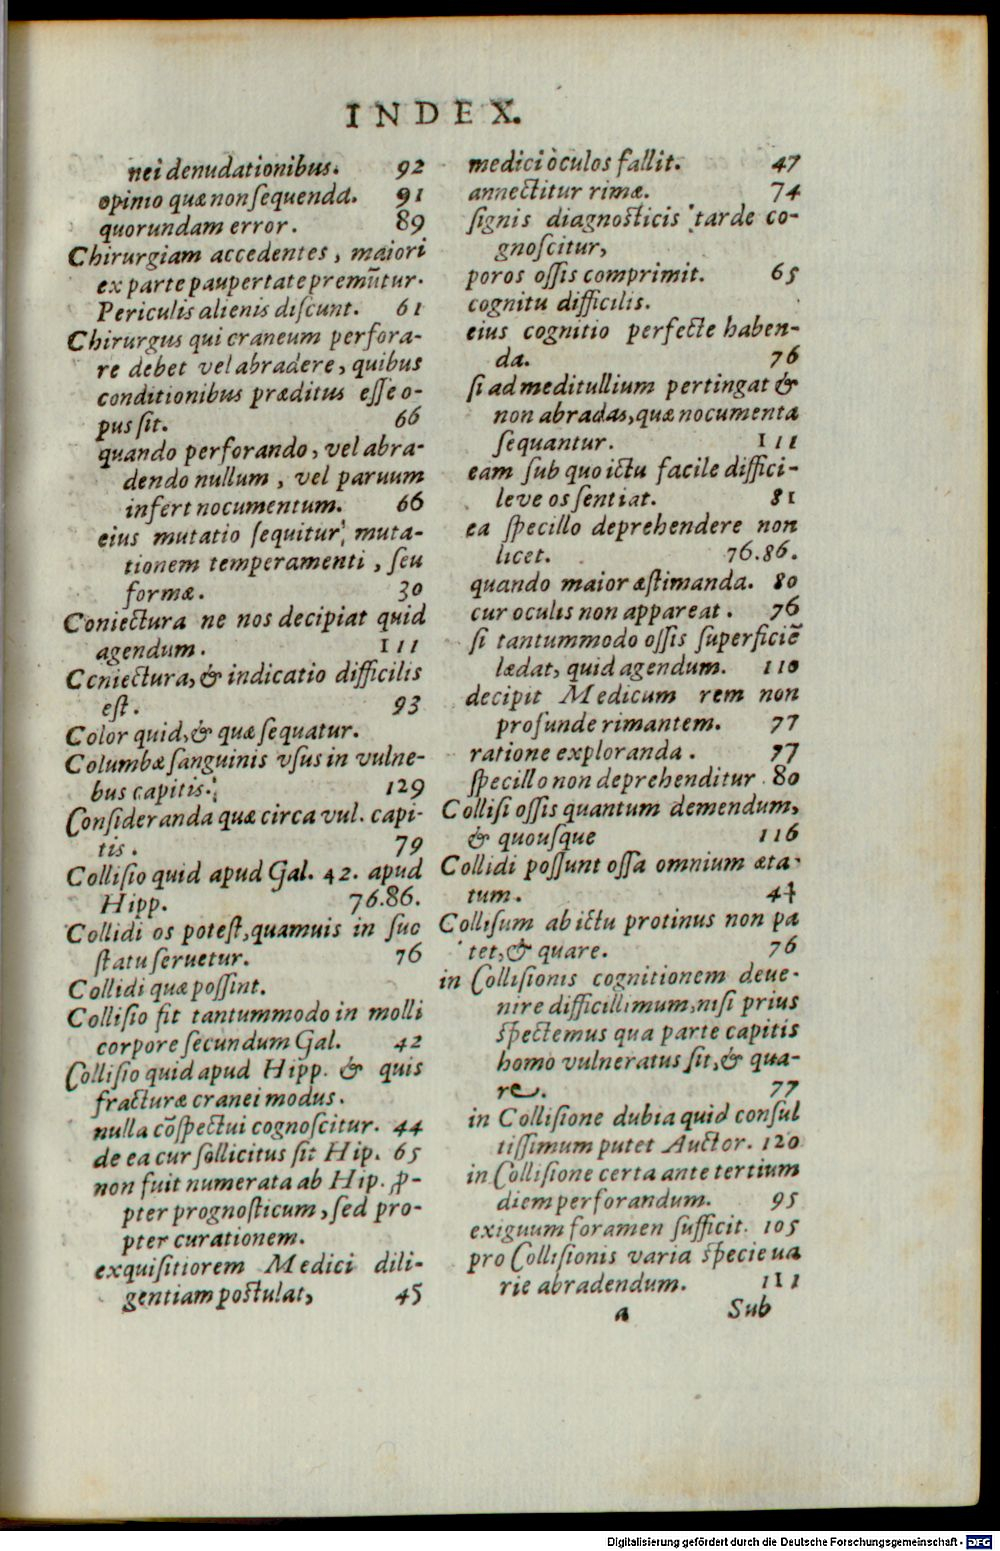 INDEX.
nei denudationibus. 92
opinio quæ non ſequenda. 91
quorundam error. 89
Chirurgiam accedentes, maiori
ex parte paupertate premũtur.
Periculis alienis diſcunt. 61
Chirurgus qui craneum perfora-
re debet vel abradere, quibus
conditionibus præditus eſſe o-
pus ſit. 66
quando perforando, vel abra-
dendo nullum, vel paruum
infert nocumentum. 66
eius mutatio ſequitur, muta-
tionem temperamenti, ſeu
formæ. 30
Coniectura ne nos decipiat quid
agendum. 111
Ccniectura, & indicatio difficilis
eſt. 93
Color quid, & quæ ſequatur.
Columbæ ſanguinis vſus in vulne-
bus capitis. 129
Conſideranda quæ circa vul. capi-
tis. 79
Colliſio quid apud Gal. 42. apud
Hipp. 76.86.
Collidi os poteſt, quamuis in ſuo
ſtatu ſeruetur. 76
Collidi quæ poſſint.
Colliſio fit tantummodo in molli
corpore ſecundum Gal. 42
Colliſio quid apud Hipp. & quis
fracturæ cranei modus.
nulla cõſpectui cognoſcitur. 44
de ea cur ſollicitus ſit Hip. 65
non fuit numerata ab Hip. ꝓ-
pter prognoſticum, ſed pro-
pter curationem.
exquiſitiorem Medici dili-
gentiam poſtulat, 45
medici òculos fallit. 47
annectitur rimæ. 74
ſignis diagnoſticis tarde co-
gnoſcitur,
poros oſſis comprimit. 65
cognitu difficilis.
eius cognitio perfecte haben-
da. 76
ſi ad meditullium pertingat &
non abradas, quæ nocumenta
ſequantur. 111
eam ſub quo ictu facile diffici-
leve os ſentiat. 81
ea ſpecillo deprehendere non
licet. 76.86.
quando maior æſtimanda. 80
cur oculis non appareat. 76
ſi tantummodo oſſis ſuperficiẽ
lædat, quid agendum. 110
decipit Medicum rem non
profunde rimantem. 77
ratione exploranda. 77
ſpecillo non deprehenditur. 80
Colliſi oſſis quantum demendum,
& quouſque 116
Collidi poſſunt oſſa omnium æta-
tum. 44
Colliſum ab ictu protinus non pa
tet, & quare. 76
in Colliſionis cognitionem deue-
nire difficillimum, niſi prius
ſpectemus qua parte capitis
homo vulneratus ſit, & qua-
re. 77
in Colliſione dubia quid conſul
tiſſimum putet Auctor. 120
in Colliſione certa ante tertium
diem perforandum. 95
exiguum foramen ſufficit. 105
pro Colliſionis varia ſpecie ua
rie abradendum. 111
a Sub
Digitalisierung gefördert durch die Deutsche Forschungsgemeinschaft - DFG